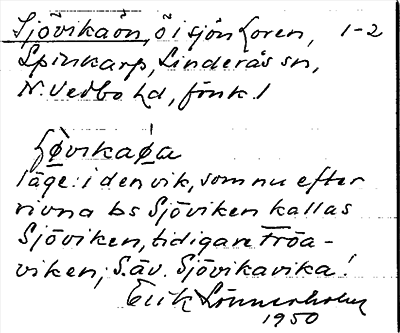 Sjövikaön, ö i sjön Loren, 1-2
Spinkarp, Linderås sn,
N. Vedbo hd, Jönk. l
ʃø̀vikaø̀a
läge: i den vik, som nu efter
rivna bs Sjöviken kallas
Sjöviken, tidigare Fröa-
viken; S. äv. Sjövikavika!
Erik Lönnerholm
1950